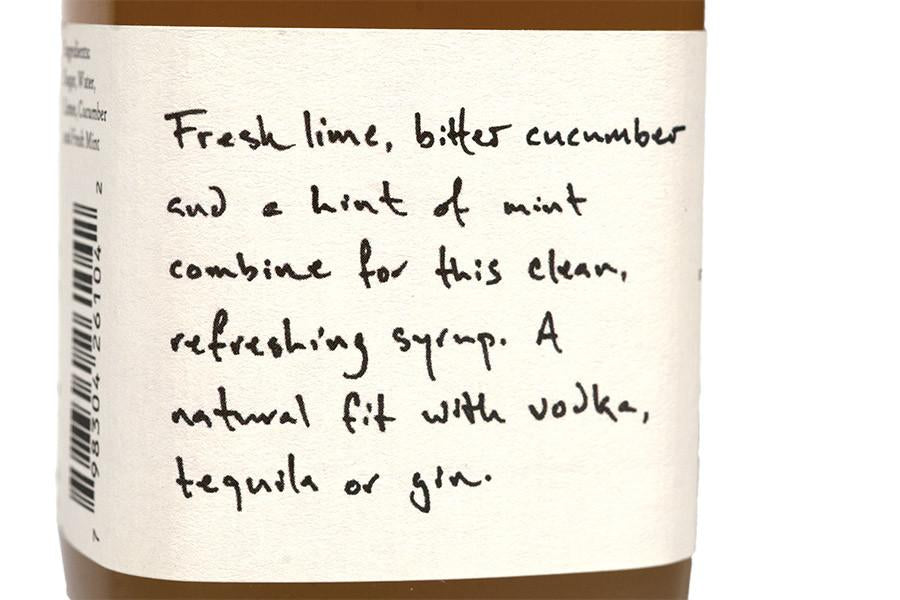 Water,
Cucumber
Fresh Mint
2
98304 26104
7
Fresh lime, bitter cucumber
and a hint of mint
combine for this clean,
refreshing syrup. A
natural fit with vodka,
tequila or gin.